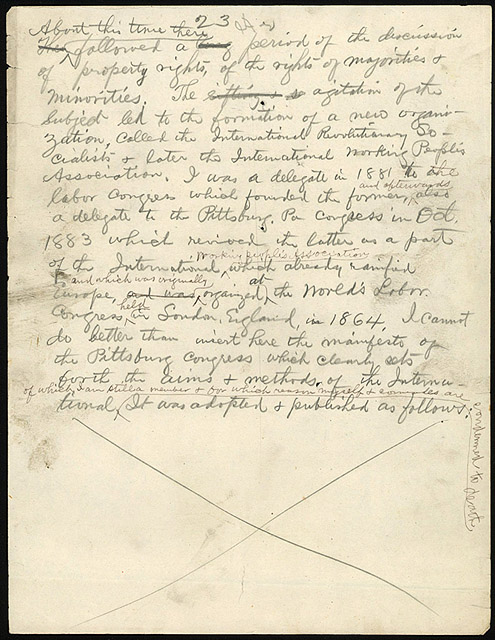 23
About this time there
followed a period of the discussion
of property rights, of the rights of majorities &
minorities. The agitation of the
subject led to the formation of a new organi-
zation, called the International Revolutionary So-
cialists & later the International Working People's
Association. I was a delegate in 1881 to the
labor Congress which founded the former, and afterwards also
a delegate to the Pittsburg, Pa Congress in Oct.
1883 which revived the latter as a part
of the International Working People's Association, which already ramified
Europe, and which was originally organized at the World's Labor
Congress held in London, England, in 1864. I cannot
do better than insert here the manifesto of
the Pittsburg Congress which clearly sets
forth the aims & methods of the Interna-
tional, of which I am still a member & for which reason myself & comrades are
condemned to death.
It was adopted & published as follows: